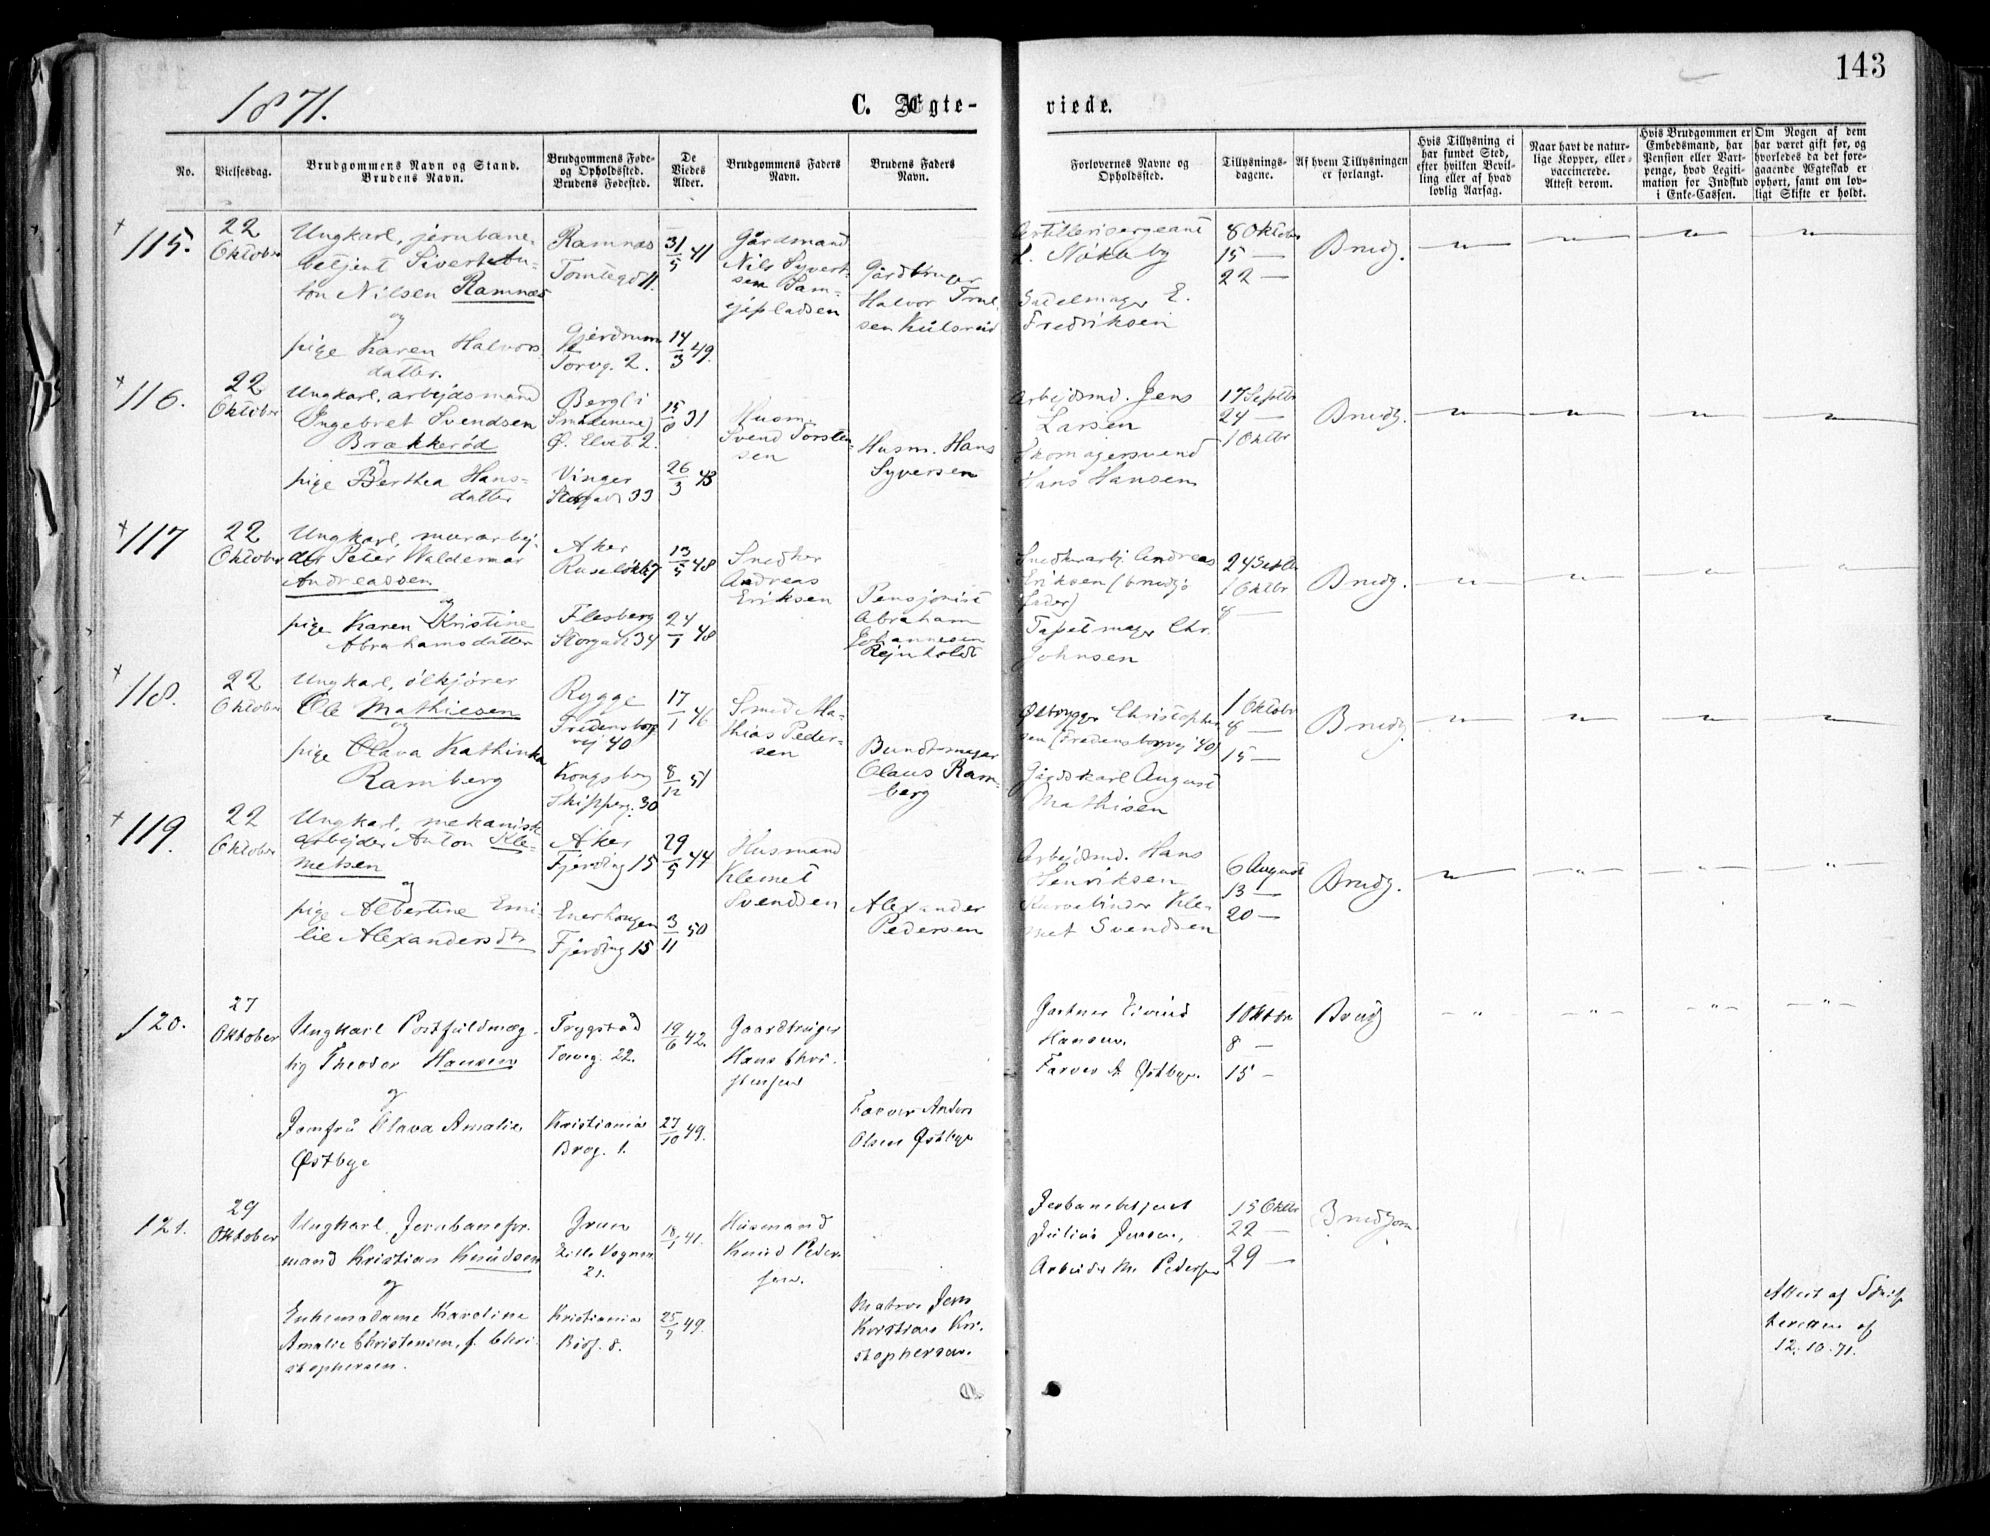 143
1871.
C. Ægte-
viede.
No.
Vielsesdag.
Brudgommens Navn og Stand.
Brudens Navn.
Brudgommens Føde-
og Opholdssted.
Brudens Fødested.
De
Viedes
Alder.
Brudgommens Faders
Navn.
Brudens Faders
Navn.
Forlovernes Navne og
Opholdssted.
Tillysnings-
dagene.
Af hvem Tillysningen
er forlangt.
Hvis Tillysning ei
har fundet Sted,
efter hvilken Bevil-
ling eller af hvad
lovlig Aarsag.
Naar havt de natur-
lige Kopper, eller
vaccinerede.
Attest derom.
Hvis Brudgommen er
Embedsmand, har
Pension eller Vart-
penge, hvad Legiti-
mation for Indskud
i Enke-Cassen.
Om Nogen af dem
har været gift før, og
hvorledes da det fore-
gaaende Ægteskab er
ophørt, samt om lov-
ligt Skifte er holdt.
115.
22
Oktober
Ungkarl, jernbane-
betjent
Nilsen Ramnæs
og
pige Karen Halvors-
datter.
Ramnæs
Tomtegd 11.
Gjerdrum
Torvg. 2.
31/5 41
14/3 49.
Gårdmand
Nils Syvert-
sen
Gårdbruger
Halvor Trul-
sen Kulsrud
Artillerisergeant
L. Nøkleby
Sadelmager E.
Fredriksen
8 Oktober
15 —
22 —
Brudg.
116.
22
Oktober
Ungkarl, arbejdsmand
Ingebret Svendsen
Brækkerød
og
pige Berthea Hans-
datter
Berg i
Smålenene
Ø. Elveb 2.
Vinger
Storgad 33
31
26/3 43
Husm.
Svend Torsten-
sen
Husm. Hans
Syversen
Arbejdsmd. Jens
Larsen
Skomagersvend
Hans Hansen
17 Septbr
24 —
1 Oktbr
Brudg.
117
22
Oktober
Ungkarl, murarbej-
der Peter Waldemar
Andreassen
og
pige Karen Kristine
Abrahamsdatter
Aker
Ruseløkb 7
Flesberg
Storgad 34
13/5 48
24/1 48
Snedker
Andreas
Eriksen
Pensjonist
Abraham
Johannesen
Rejnholdt
Snedkerarbj. Andreas
Eriksen (brudgs
fader)
Tapetmager Chr.
Johnsen
24 Septbr
1 Oktbr
8 —
Brudg.
118.
22
Oktober
Ungkarl, ølkjører
Ole Mathiesen
og
pige Olava Kathinka
Ramberg
Rygge
Fredensborg
vej 40
Kongsberg
Skipperg. 30
17/1 46
8/12 51
Smed Ma-
thias Peder-
sen
Bundtmager
Claus Ram-
berg
Ølbrygger Christopher-
sen (Fredensborgvej 40)
Gårdskarl August
Mathisen
1 Oktobr
8 —
15 —
Brudg.
119.
22
Oktober
Ungkarl, mekanisk
arbejder Anton Kle-
metsen
og
pige Albertine Emi-
lie Alexandersdtr
Aker
Fjerding 15
Enerhougen
Fjerding 15
29/5 44
3/11 50
Husmand
Klemet
Svendsen
Alexander
Pedersen
Arbejdsmd. Hans
Henriksen
Kurvebinder Kle-
met Svendsen
6 August
13 —
20 —
Brudg.
120.
27
Oktober
Ungkarl Postfuldmæg-
tig Theodor Hansen
og
Jomfru Olava Amalie
Østbye
Trygstad
Torvg. 22.
Kristiania
Brog. 1.
19/6 42.
27/10 49.
Gaardbruger
Hans Chri-
stensen
Farver Anders
Olsen Østbye
Gartner Eivind
Hansen.
Farver A Østbye.
1 Oktbr
8 —
15 —
Brudg
121.
29
Oktober
Ungkarl, Jernbanefor-
mand Kristian Knudsen
og
Enkemadame Karoline
Amalie Christensen, f. Chri-
stophersen.
Grue
Lille Vognm
21.
Kristiania
Bisp. 8.
41.
25/9 49.
Husmand
Knud Peder-
sen.
Matros Jens
Kristian Kri-
stophersen.
Jerbanebetjent
Julius Jensen,
Arbeider M. Pedersen
15 Oktbr
22 —
29 —
Brudgom.
Attest af Skif-
teretten af
12-10-71.